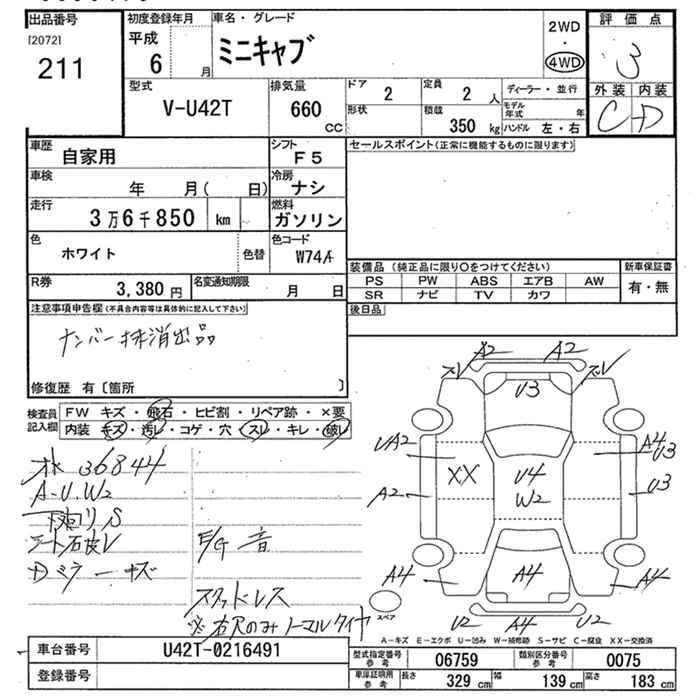 出品番号
[2072]
211
初度登録年月
平成
6 月
車名・グレード
ミニキャブ
2WD
・
4WD
評価点
3
外装 内装
C D
型式
V-U42T
排気量
660 CC
ドア
2
形状
定員
2 人
積載
350 kg
ディーラー・並行
モデル年式 年
ハンドル 左・右
車歴
自家用
シフト
F5
車検
年 月( 日)
冷房
ナシ
走行
3万6千850 km
燃料
ガソリン
色
ホワイト
色替
色コード
W74A
R券
3,380 円
名変通知期限
月 日
セールスポイント(正常に機能するものに限ります)
装備品 (純正品に限り○をつけてください)
PS PW ABS エアB AW
SR ナビ TV カワ
新車保証書
有・無
後日品
注意事項申告欄(不具合内容等は具体的に記入して下さい)
ナンバー抹消出品
修復歴 有〔箇所 〕
検査員記入欄
FW キズ・飛石・ヒビ割・リペア跡・×要
内装 キズ・汚レ・コゲ・穴・スレ・キレ・破レ
36844
A-U.W2
下回りS
シート石皮V
Dミラーキズ
E/G音
スタッドレス
※右Rのみノーマルタイヤ
A2 A2
V3
UA2
XX
A4
U3
A2
U4
W2
U3
A4
A4
A4
スペア
U2 A4 U2
A-キズ E-エクボ U-凹み W-補修跡 S-サビ C-腐食 XX-交換済
車台番号
U42T-0216491
登録番号
型式指定番号 参考
06759
類別区分番号 参考
0075
車庫証明用 参考
長さ 329 cm 幅 139 cm 高さ 183 cm